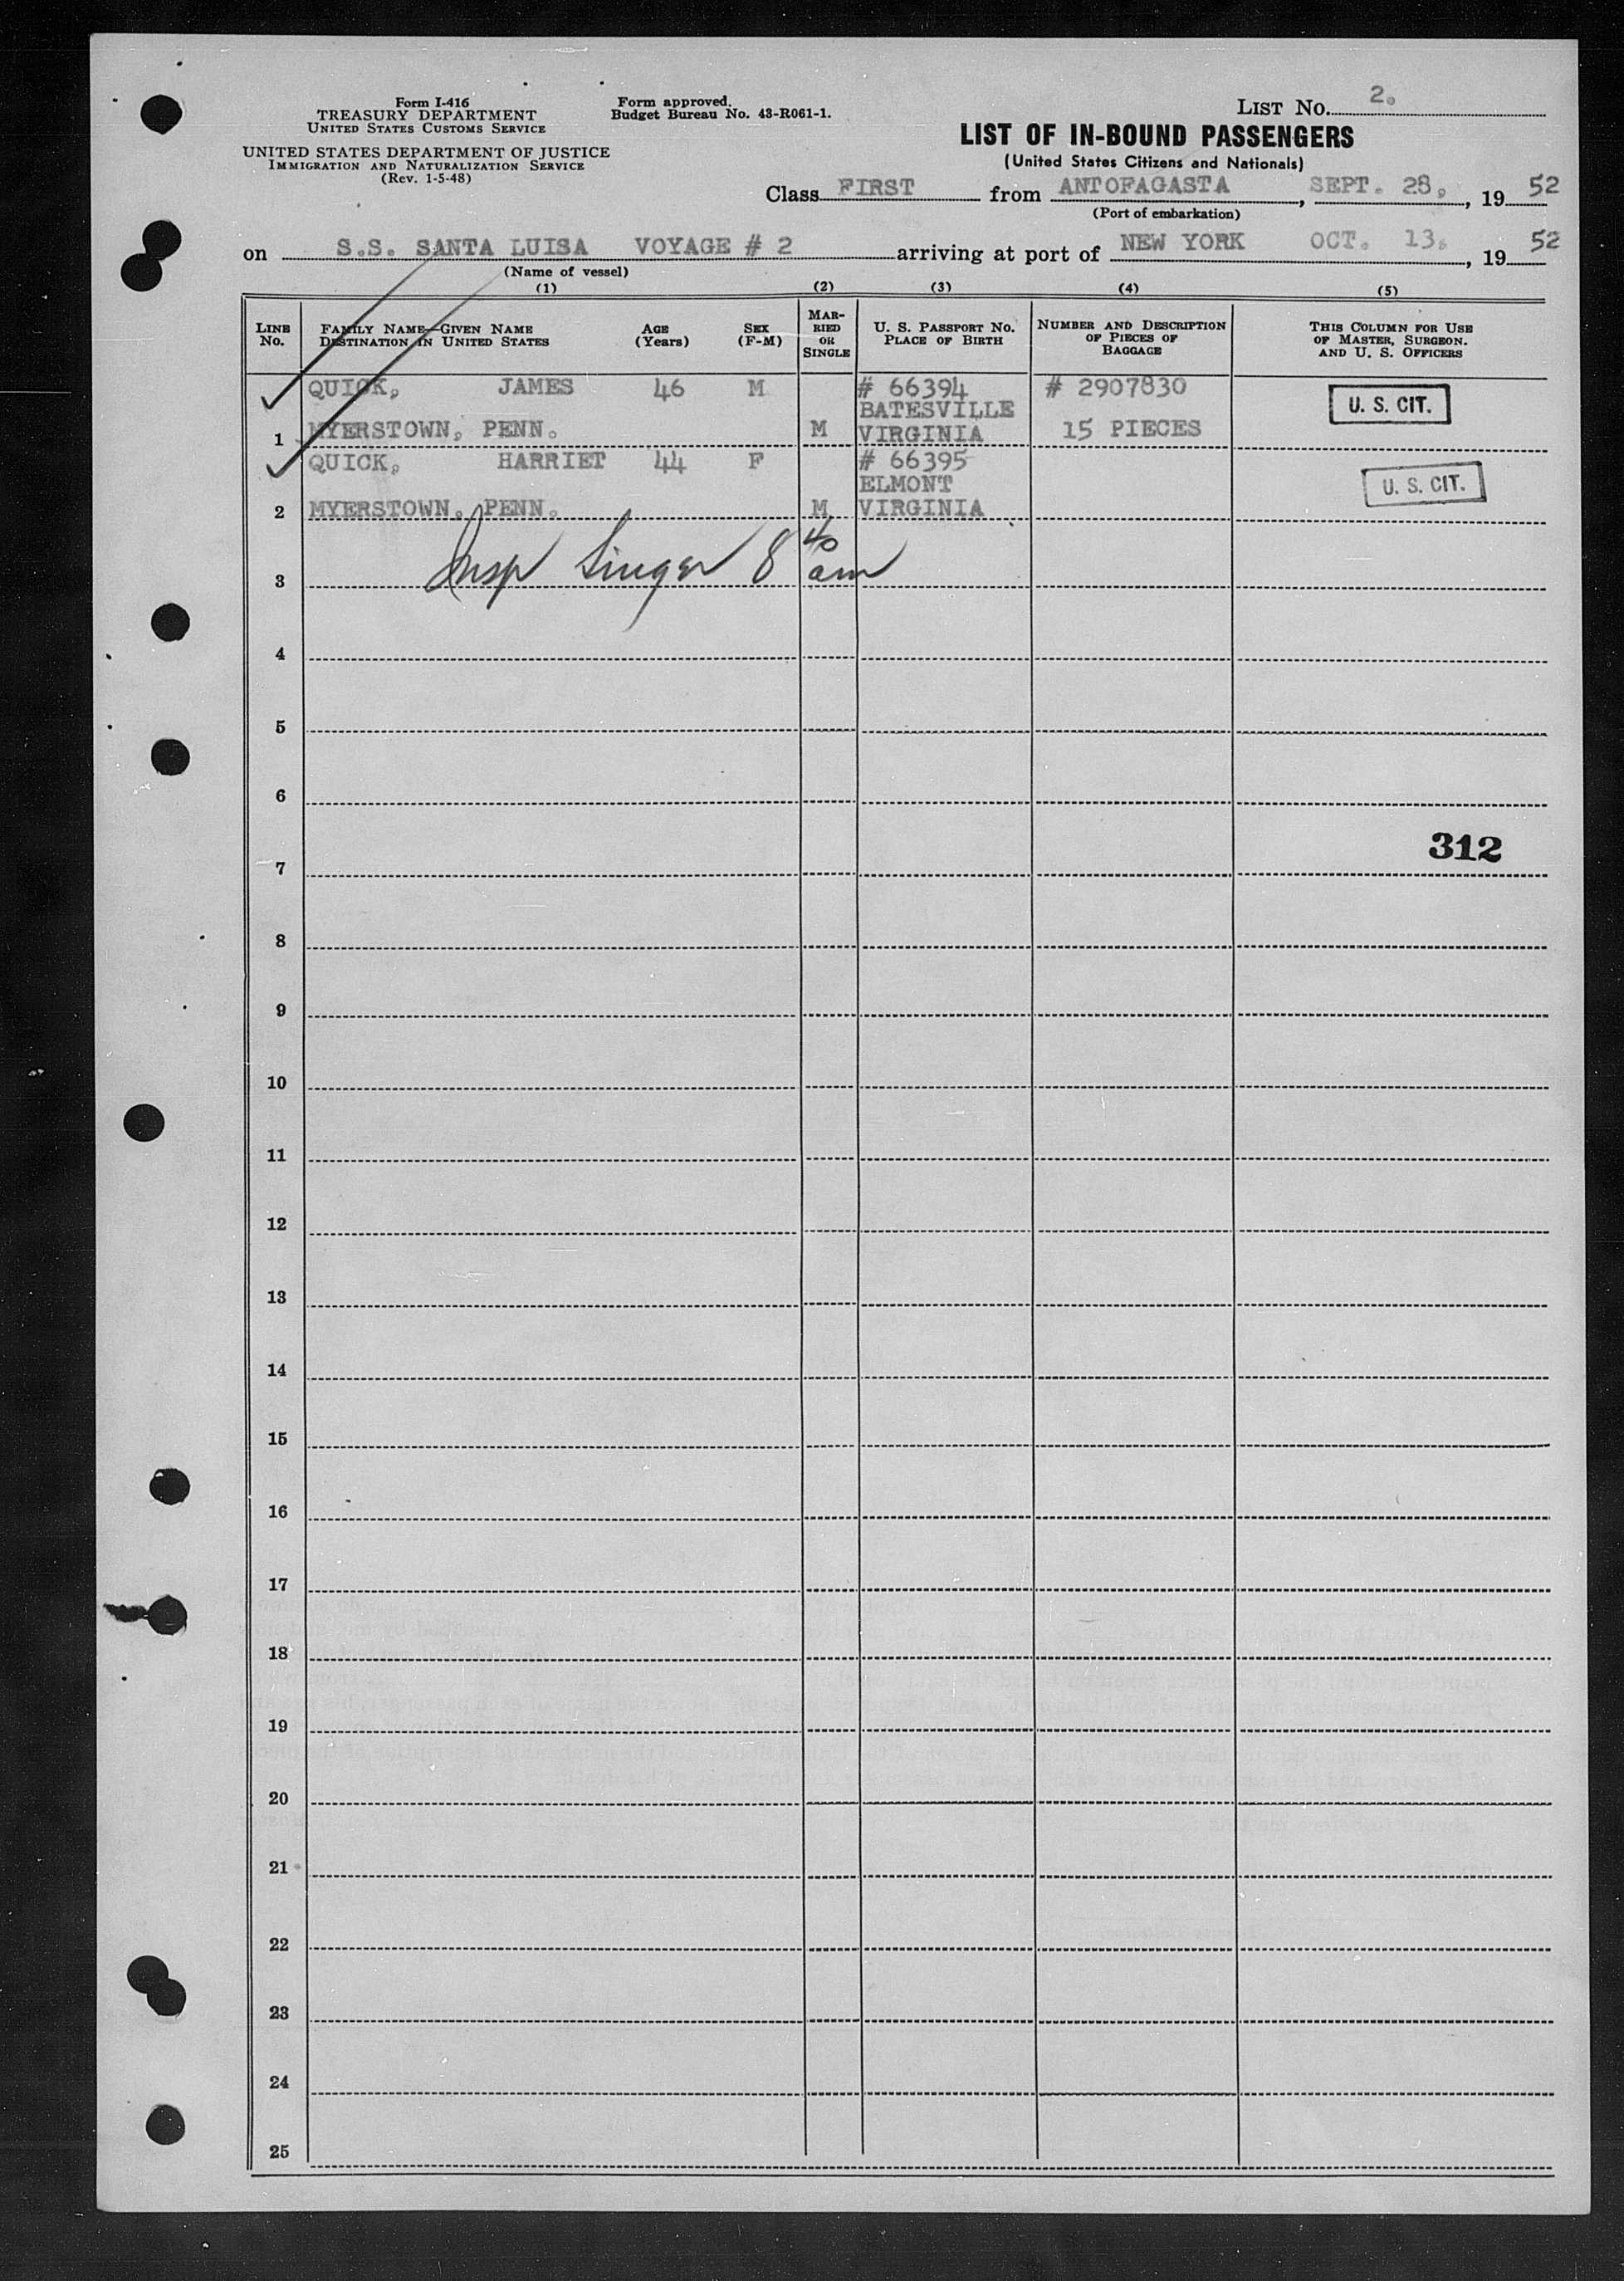 Form I-416
TREASURY DEPARTMENT
UNITED STATES CUSTOMS SERVICE
UNITED STATES DEPARTMENT OF JUSTICE
IMMIGRATION AND NATURALIZATION SERVICE
(Rev. 1-5-48)
Form approved.
Budget Bureau No. 43-R061-1.
LIST No. 2.
LIST OF IN-BOUND PASSENGERS
(United States Citizens and Nationals)
Class FIRST from ANTOFAGASTA, SEPT. 28., 19 52
(Port of embarkation)
on S.S. SANTA LUISA VOYAGE # 2 arriving at port of NEW YORK OCT. 13., 19 52
(Name of vessel)
(1) (2) (3) (4) (5)
LINE No.
FAMILY NAME—GIVEN NAME
DESTINATION IN UNITED STATES
AGE (Years)
SEX (F-M)
MAR-RIED OR SINGLE
U. S. PASSPORT NO.
PLACE OF BIRTH
NUMBER AND DESCRIPTION OF PIECES OF BAGGAGE
THIS COLUMN FOR USE OF MASTER, SURGEON. AND U. S. OFFICERS
QUICK, JAMES 46 M # 66394 # 2907830 U. S. CIT.
BATESVILLE
1 MYERSTOWN, PENN. M VIRGINIA 15 PIECES
QUICK, HARRIET 44 F # 66395
ELMONT U. S. CIT.
2 MYERSTOWN, PENN. M VIRGINIA
Insp Singer 8 40 am
3
4
5
6
312
7
8
9
10
11
12
13
14
15
16
17
18
19
20
21
22
23
24
25